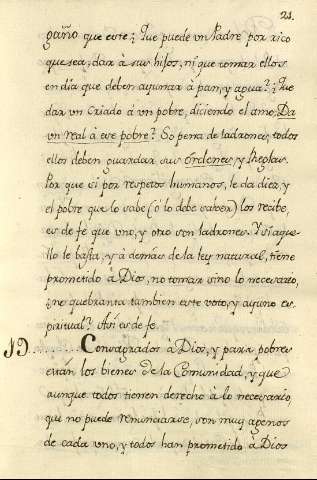 21.
gaño que este? Que puede vn Padre por rico
que sea, dar à sus hijos, ni que tomar ellos
en dia que deben ayunar à pan, y agua? Que
dar un criado á un pobre, diciendo el amo: Da
un real à ese pobre? So pena de ladrones, todos
ellos deben guardar sus Ordenes, y Reglas.
Por que si por respetos humanos, le da diez, y
el pobre que lo sabe (ó lo debe saber) los recibe,
es de fé que uno, y otro son ladrones. Y si aque-
llo le basta, y à demàs de la ley natural, tiene
prometido à Dios, no tomar sino lo necesario,
no quebranta tambien este voto, y ayuno es-
piritual? Asi es de fe.
19....... Consagrados à Dios, y para pobres
estan los bienes de la Comunidad, y que
aunque todos tienen derecho à lo necesario,
qui no puede renunciarse, son muy agenos
de cada uno, y todos han prometido à Dios